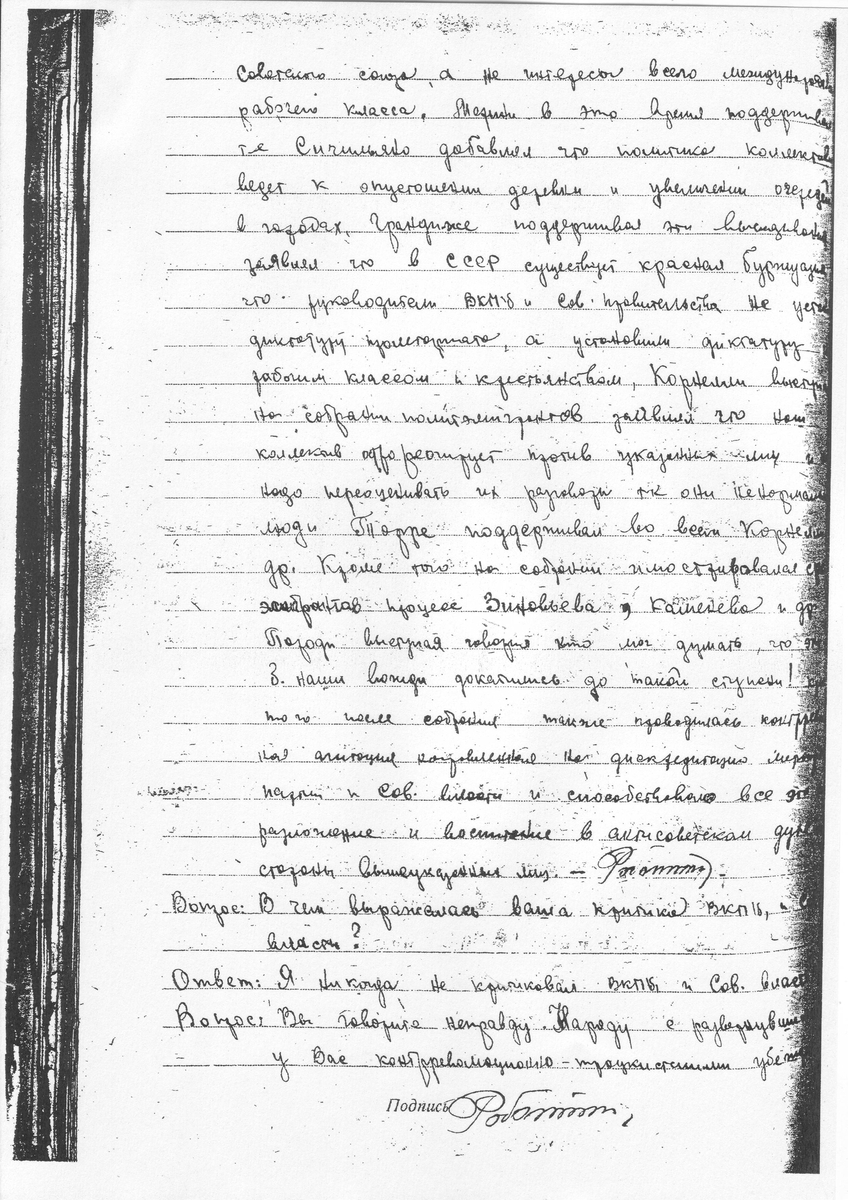 Советского союза, а не интересы всего международ
рабочего класса. в это время поддержива
т-е Сичильяно добавлял что политика коллектив
ведет к опустошении деревни и увеличении очередей
в городах, Гранджже поддерживая эти высказывания
заявлял что в СССР существует красная буржуазия
что руководители ВКПб и Сов. правительства не уста
диктатуру пролетариата, а установили диктатуру
рабочим классом и крестьянством, Корнелли выступ
на собрании политэмигрантов заявлял что наш
коллектив против указанных лиц и
надо переоценивать их разговоры тк они ненормал
люди Торре поддерживал во всем Корнелли
др. Кроме того на собрании
процесс Зиновьева, Каменева и др
выступая говорил кто мог думать, что эти
3. наши вожди докатились до такой ступени!
того после собрания также проводилась контррев
ная агитация направленная на дискредитацию мероп
партии и Сов. власти и способствовало все это
разложение и воспитание в антисоветском духе
стороны вышеуказанных лиц. – Роботти.
Вопрос: В чем выражалась ваша критика ВКПб, и
власти?
Ответ: Я никогда не критиковал ВКПб и Сов. власт
Вопрос: Вы говорите неправду. Наряду с развернувшим
у Вас контрреволюционно-троцкистскими убежд
Подпись Роботти